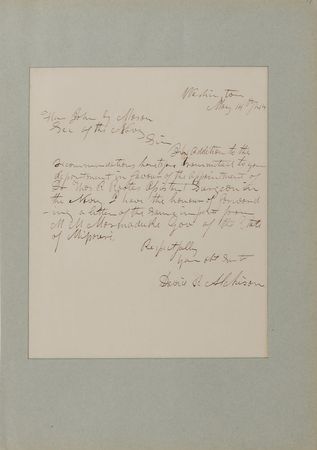 Washington
May 14th
Hon John Y Mason
Sec of the Navy
Sir
In addition to the
recommendations heretofore transmitted to your
department in favour of the appointment of
Dr Thos B
Surgeon in
the Navy I have the honour of forward
-ing a letter of the same import from
M M Marmaduke Gov of the State
of Missouri.
Respectfully
Your obt Svt
David R Atchison